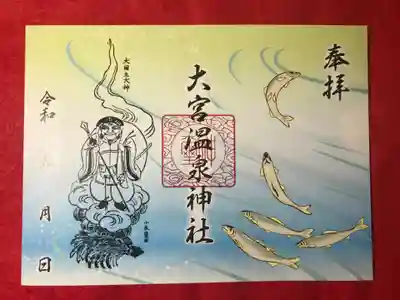 奉拝
大宮温泉神社
大田主大神
令和 月 日